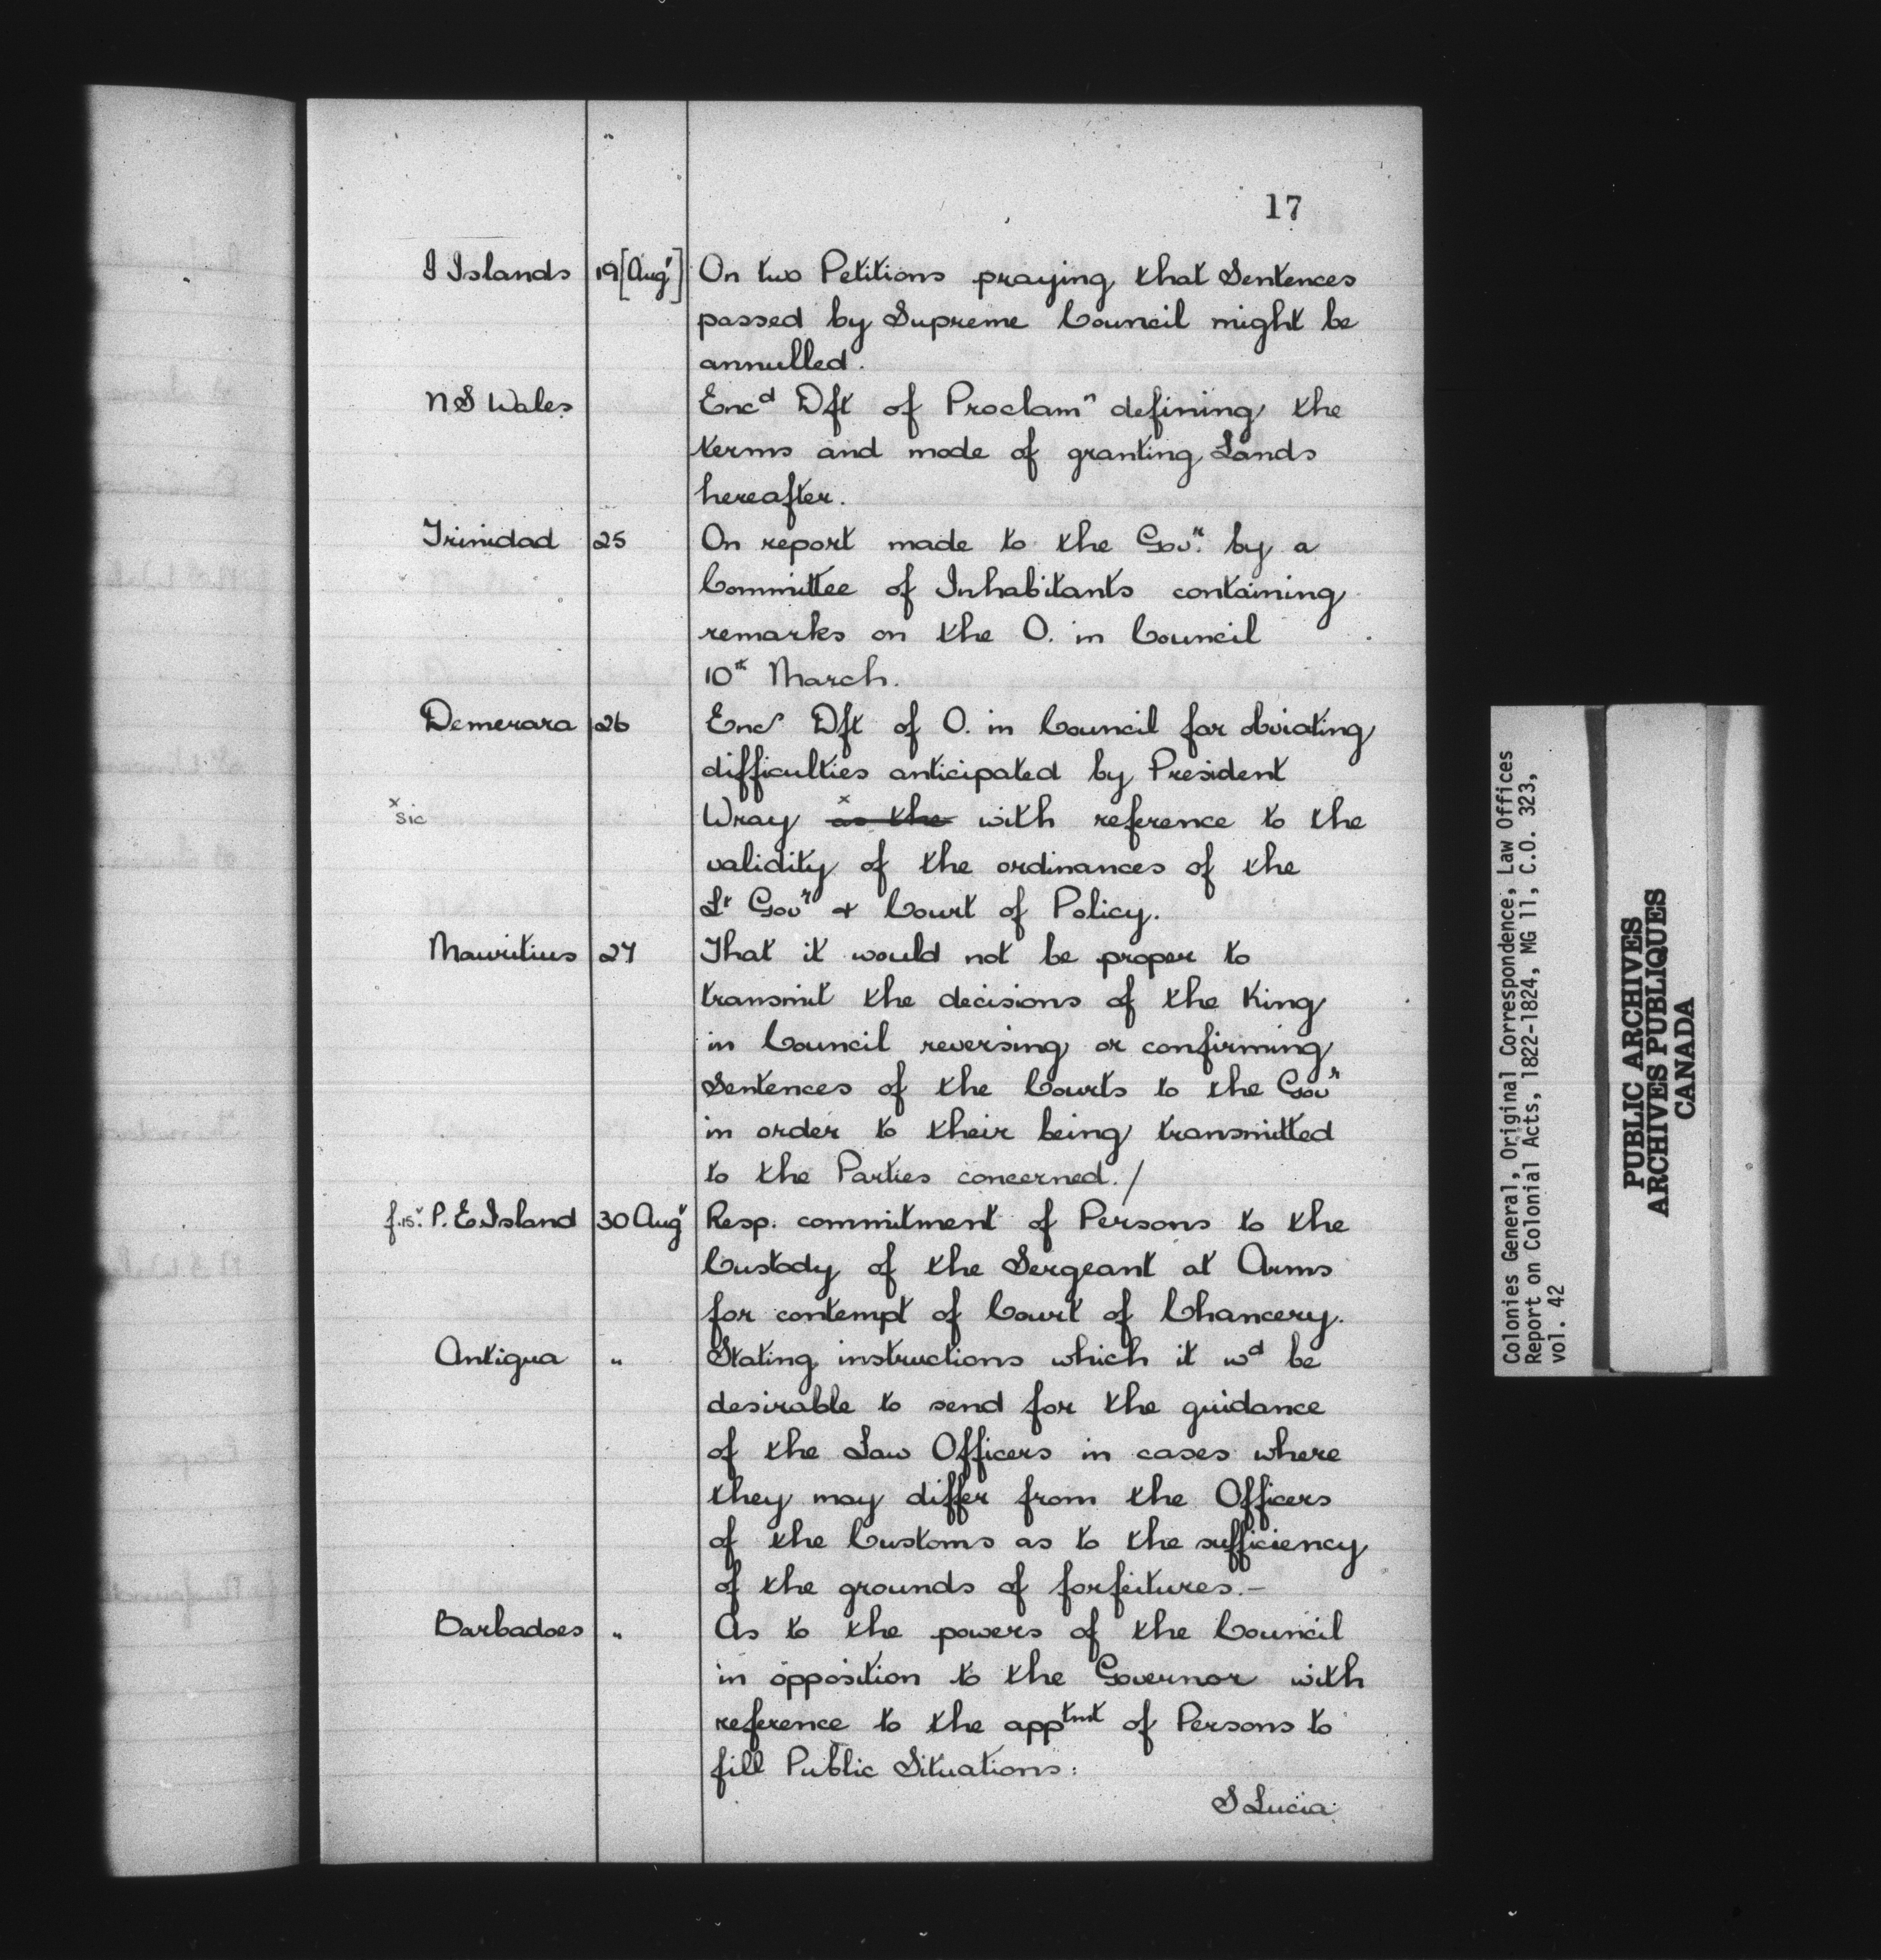 17
I Islands 19 [Augt] On two Petitions praying that Sentences
passed by Supreme Council might be
annulled.
N S Wales Encd Dft of Proclamn defining the
terms and mode of granting Lands
hereafter.
Trinidad 25 On report made to the Govr. by a
Committee of Inhabitants containing
remarks on the O. in Council
10th March.
Demerara 26 Encd Dft of O. in Council for obviating
difficulties anticipated by President
x sic Wray x as the with reference to the
validity of the ordinances of the
Lt Govr & Court of Policy.
Mauritius 27 That it would not be proper to
transmit the decisions of the King
in Council reversing or confirming
Sentences of the Courts to the Govr
in order to their being transmitted
to the Parties concerned. /
f.15v. P. E. Island 30 Augt Resp. commitment of Persons to the
Custody of the Sergeant at Arms
for contempt of Court of Chancery.
Antigua " Stating instructions which it wd be
desirable to send for the guidance
of the Law Officers in cases where
they may differ from the Officers
of the Customs as to the sufficiency
of the grounds of forfeitures.-
Barbadoes " As to the powers of the Council
in opposition to the Governor with
reference to the apptmt of Persons to
fill Public Situations:
S Lucia
Colonies General, Original Correspondence, Law Offices
Report on Colonial Acts, 1822-1824, MG 11, C.O. 323,
vol. 42
PUBLIC ARCHIVES
ARCHIVES PUBLIQUES
CANADA